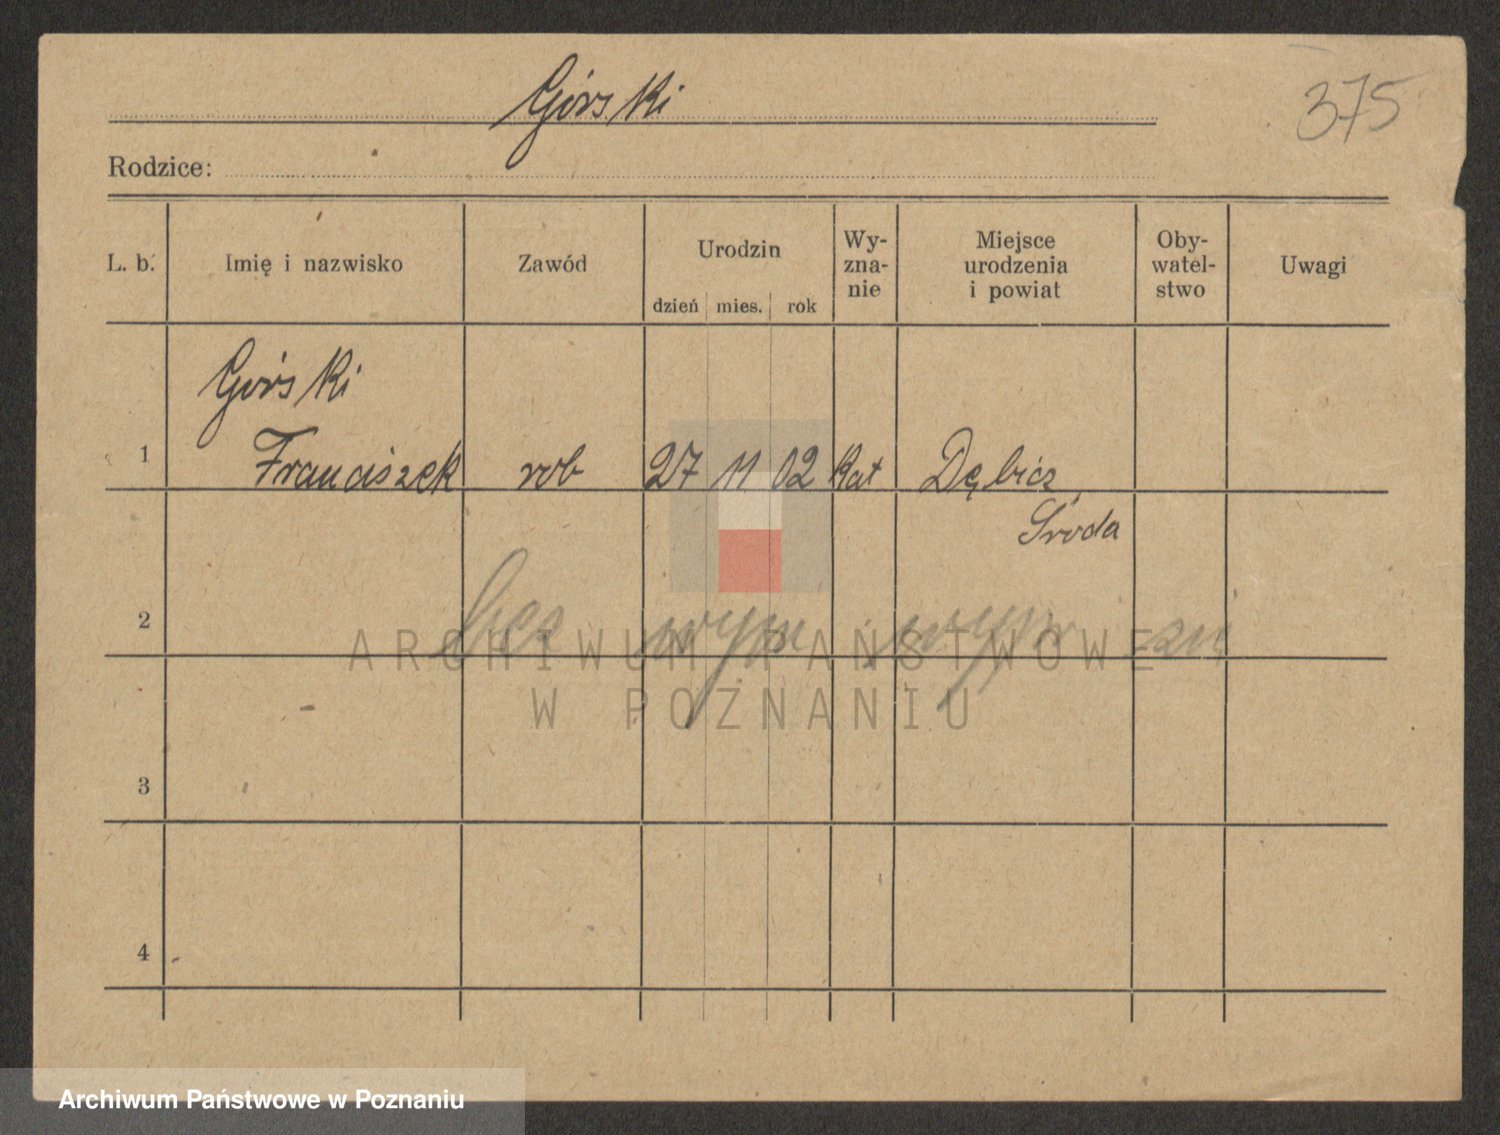 Górski
375
Rodzice:
L. b. Imię i nazwisko Zawód Urodzin dzień mies. rok Wy-zna-nie Miejsce urodzenia i powiat Oby-watel-stwo Uwagi
Górski
1 Franciszek rob 27 11 02 kat Dębicz
Środa
2 bez wym
ARCHIWUM PAŃSTWOWE
W POZNANIU
3
4
Archiwum Państwowe w Poznaniu